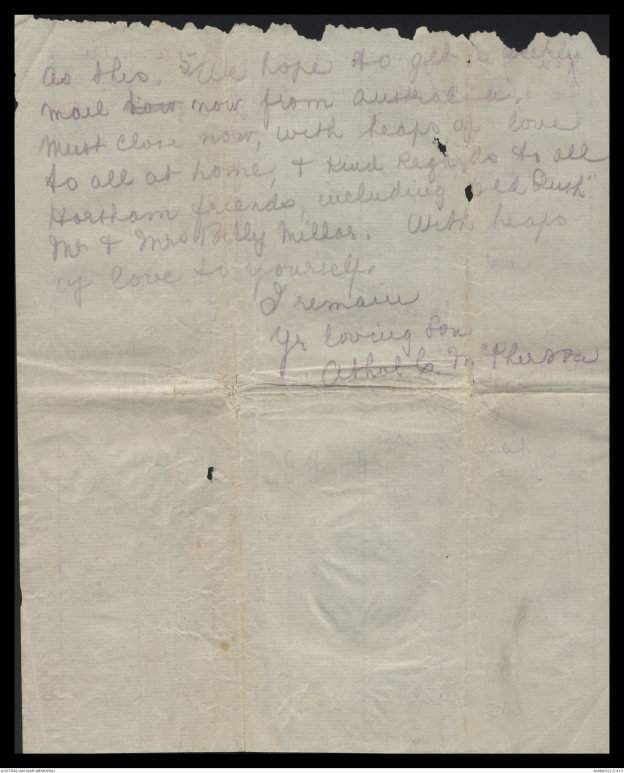 as this. We hope to get a weekly
mail how now from Australia.
Must close now, with heaps of love
to all at home, & kind regards to all
Horsham friends, including "old Rush"
Mr & Mrs Billy Millar. With heaps
of love to yourself.
I remain
Yr loving Son
Athol G. McPherson
AUSTRALIAN WAR MEMORIAL